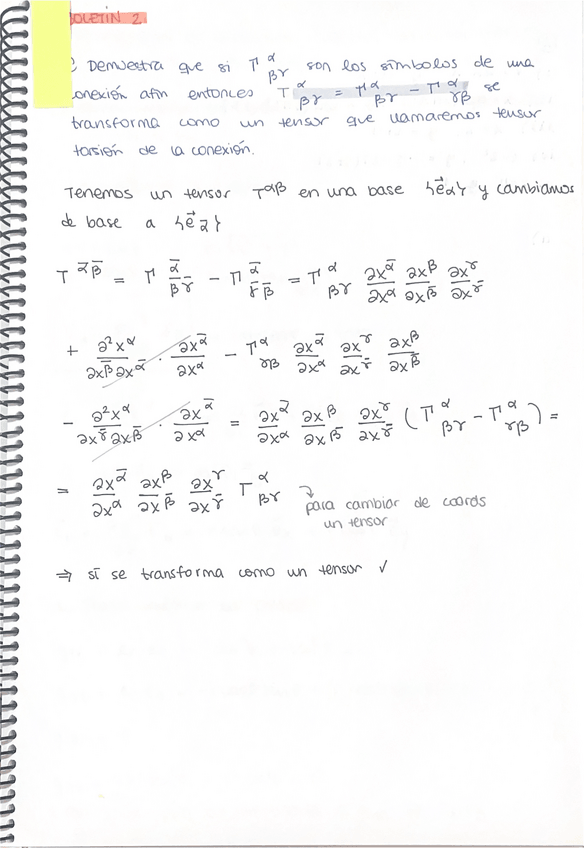 BOLETÍN 2
Demuestra que si Γ^α_βγ son los símbolos de una
conexión afín entonces T^α_βγ = Γ^α_βγ - Γ^α_γβ se
transforma como un tensor que llamaremos tensor
torsión de la conexión.
Tenemos un tensor T^αβ en una base {e⃗_α} y cambiamos
de base a {e⃗_ᾱ}
T^ᾱβ̄ = Γ^ᾱ_β̄γ̄ - Γ^ᾱ_γ̄β̄ = Γ^α_βγ ∂x^ᾱ/∂x^α ∂x^β/∂x^β̄ ∂x^γ/∂x^γ̄
+ ∂²x^α/∂x^β̄∂x^ᾱ · ∂x^ᾱ/∂x^α - Γ^α_γβ ∂x^ᾱ/∂x^α ∂x^γ/∂x^γ̄ ∂x^β/∂x^β̄
- ∂²x^α/∂x^γ̄∂x^β̄ · ∂x^ᾱ/∂x^α = ∂x^ᾱ/∂x^α ∂x^β/∂x^β̄ ∂x^γ/∂x^γ̄ (Γ^α_βγ - Γ^α_γβ) =
= ∂x^ᾱ/∂x^α ∂x^β/∂x^β̄ ∂x^γ/∂x^γ̄ T^α_βγ
para cambiar de coords
un tensor
⇒ sí se transforma como un tensor ✓